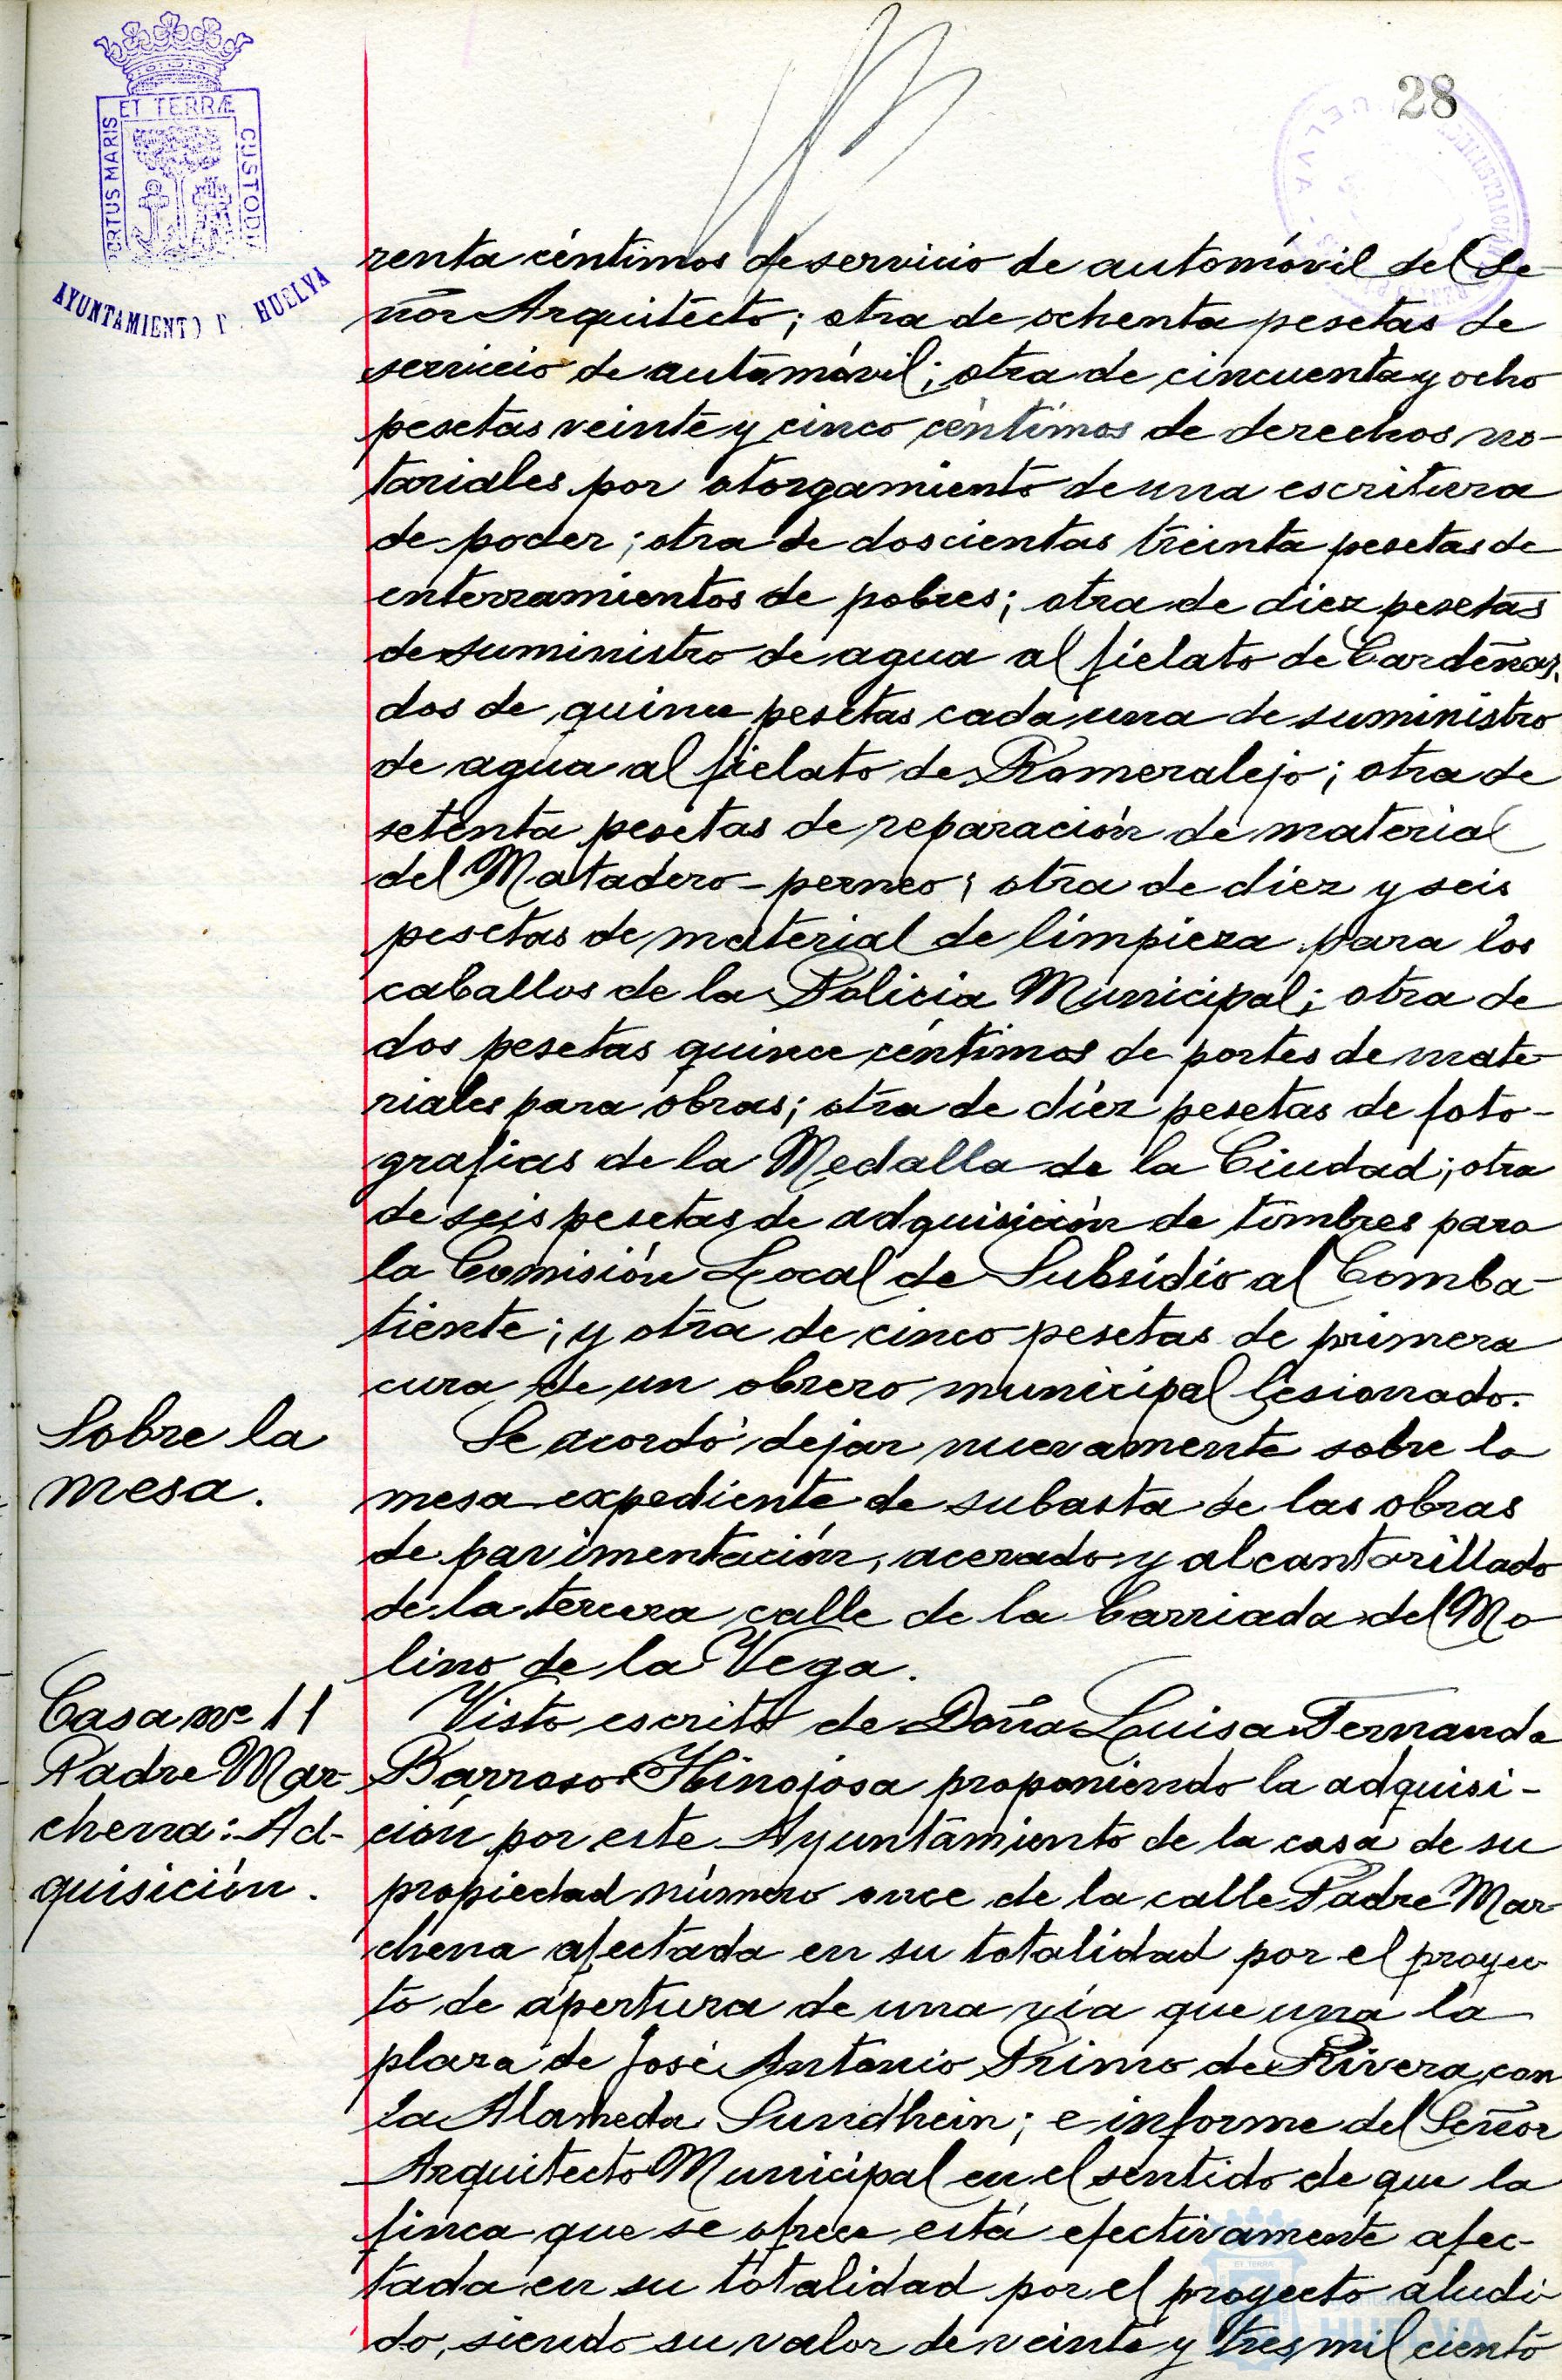 28
ET TERRÆ
PORTUS MARIS
CUSTODIA
AYUNTAMIENTO D. HUELVA
renta céntimos de servicio de automóvil del Se-
ñor Arquitecto; otra de ochenta pesetas de
servicio de automóvil; otra de cincuenta y ocho
pesetas veinte y cinco céntimos de derechos no-
tariales por otorgamiento de una escritura
de poder; otra de doscientas treinta pesetas de
enterramientos de pobres; otra de diez pesetas
de suministro de agua al fielato de Cardeñas,
dos de quince pesetas cada una de suministro
de agua al fielato de Romeralejo; otra de
setenta pesetas de reparación de material
del Matadero-perneo; otra de diez y seis
pesetas de material de limpieza para los
caballos de la Policia Municipal; otra de
dos pesetas quince céntimos de portes de mate-
riales para obras; otra de diez pesetas de foto-
grafias de la Medalla de la Ciudad; otra
de seis pesetas de adquisición de timbres para
la Comisión Local de Subsidio al Comba-
tiente; y otra de cinco pesetas de primera
cura de un obrero municipal lesionado.
Sobre la
mesa.
Se acordó dejar nuevamente sobre la
mesa expediente de subasta de las obras
de pavimentación, acerado y alcantarillado
de la tercera calle de la barriada del Mo
lino de la Vega.
Casa nº 11
Padre Mar-
chena: Ad-
quisición.
Visto escrito de Doña Luisa Fernanda
Barroso Hinojosa proponiendo la adquisi-
ción por este Ayuntamiento de la casa de su
propiedad número once de la calle Padre Mar
chena afectada en su totalidad por el proyec
to de apertura de una vía que una la
plaza de José Antonio Primo de Rivera con
la Alameda Sundhein; e informe del Señor
Arquitecto Municipal en el sentido de que la
finca que se ofrece está efectivamente afec-
tada en su totalidad por el proyecto aludi
do, siendo su valor de veinte y tres mil ciento
HUELVA